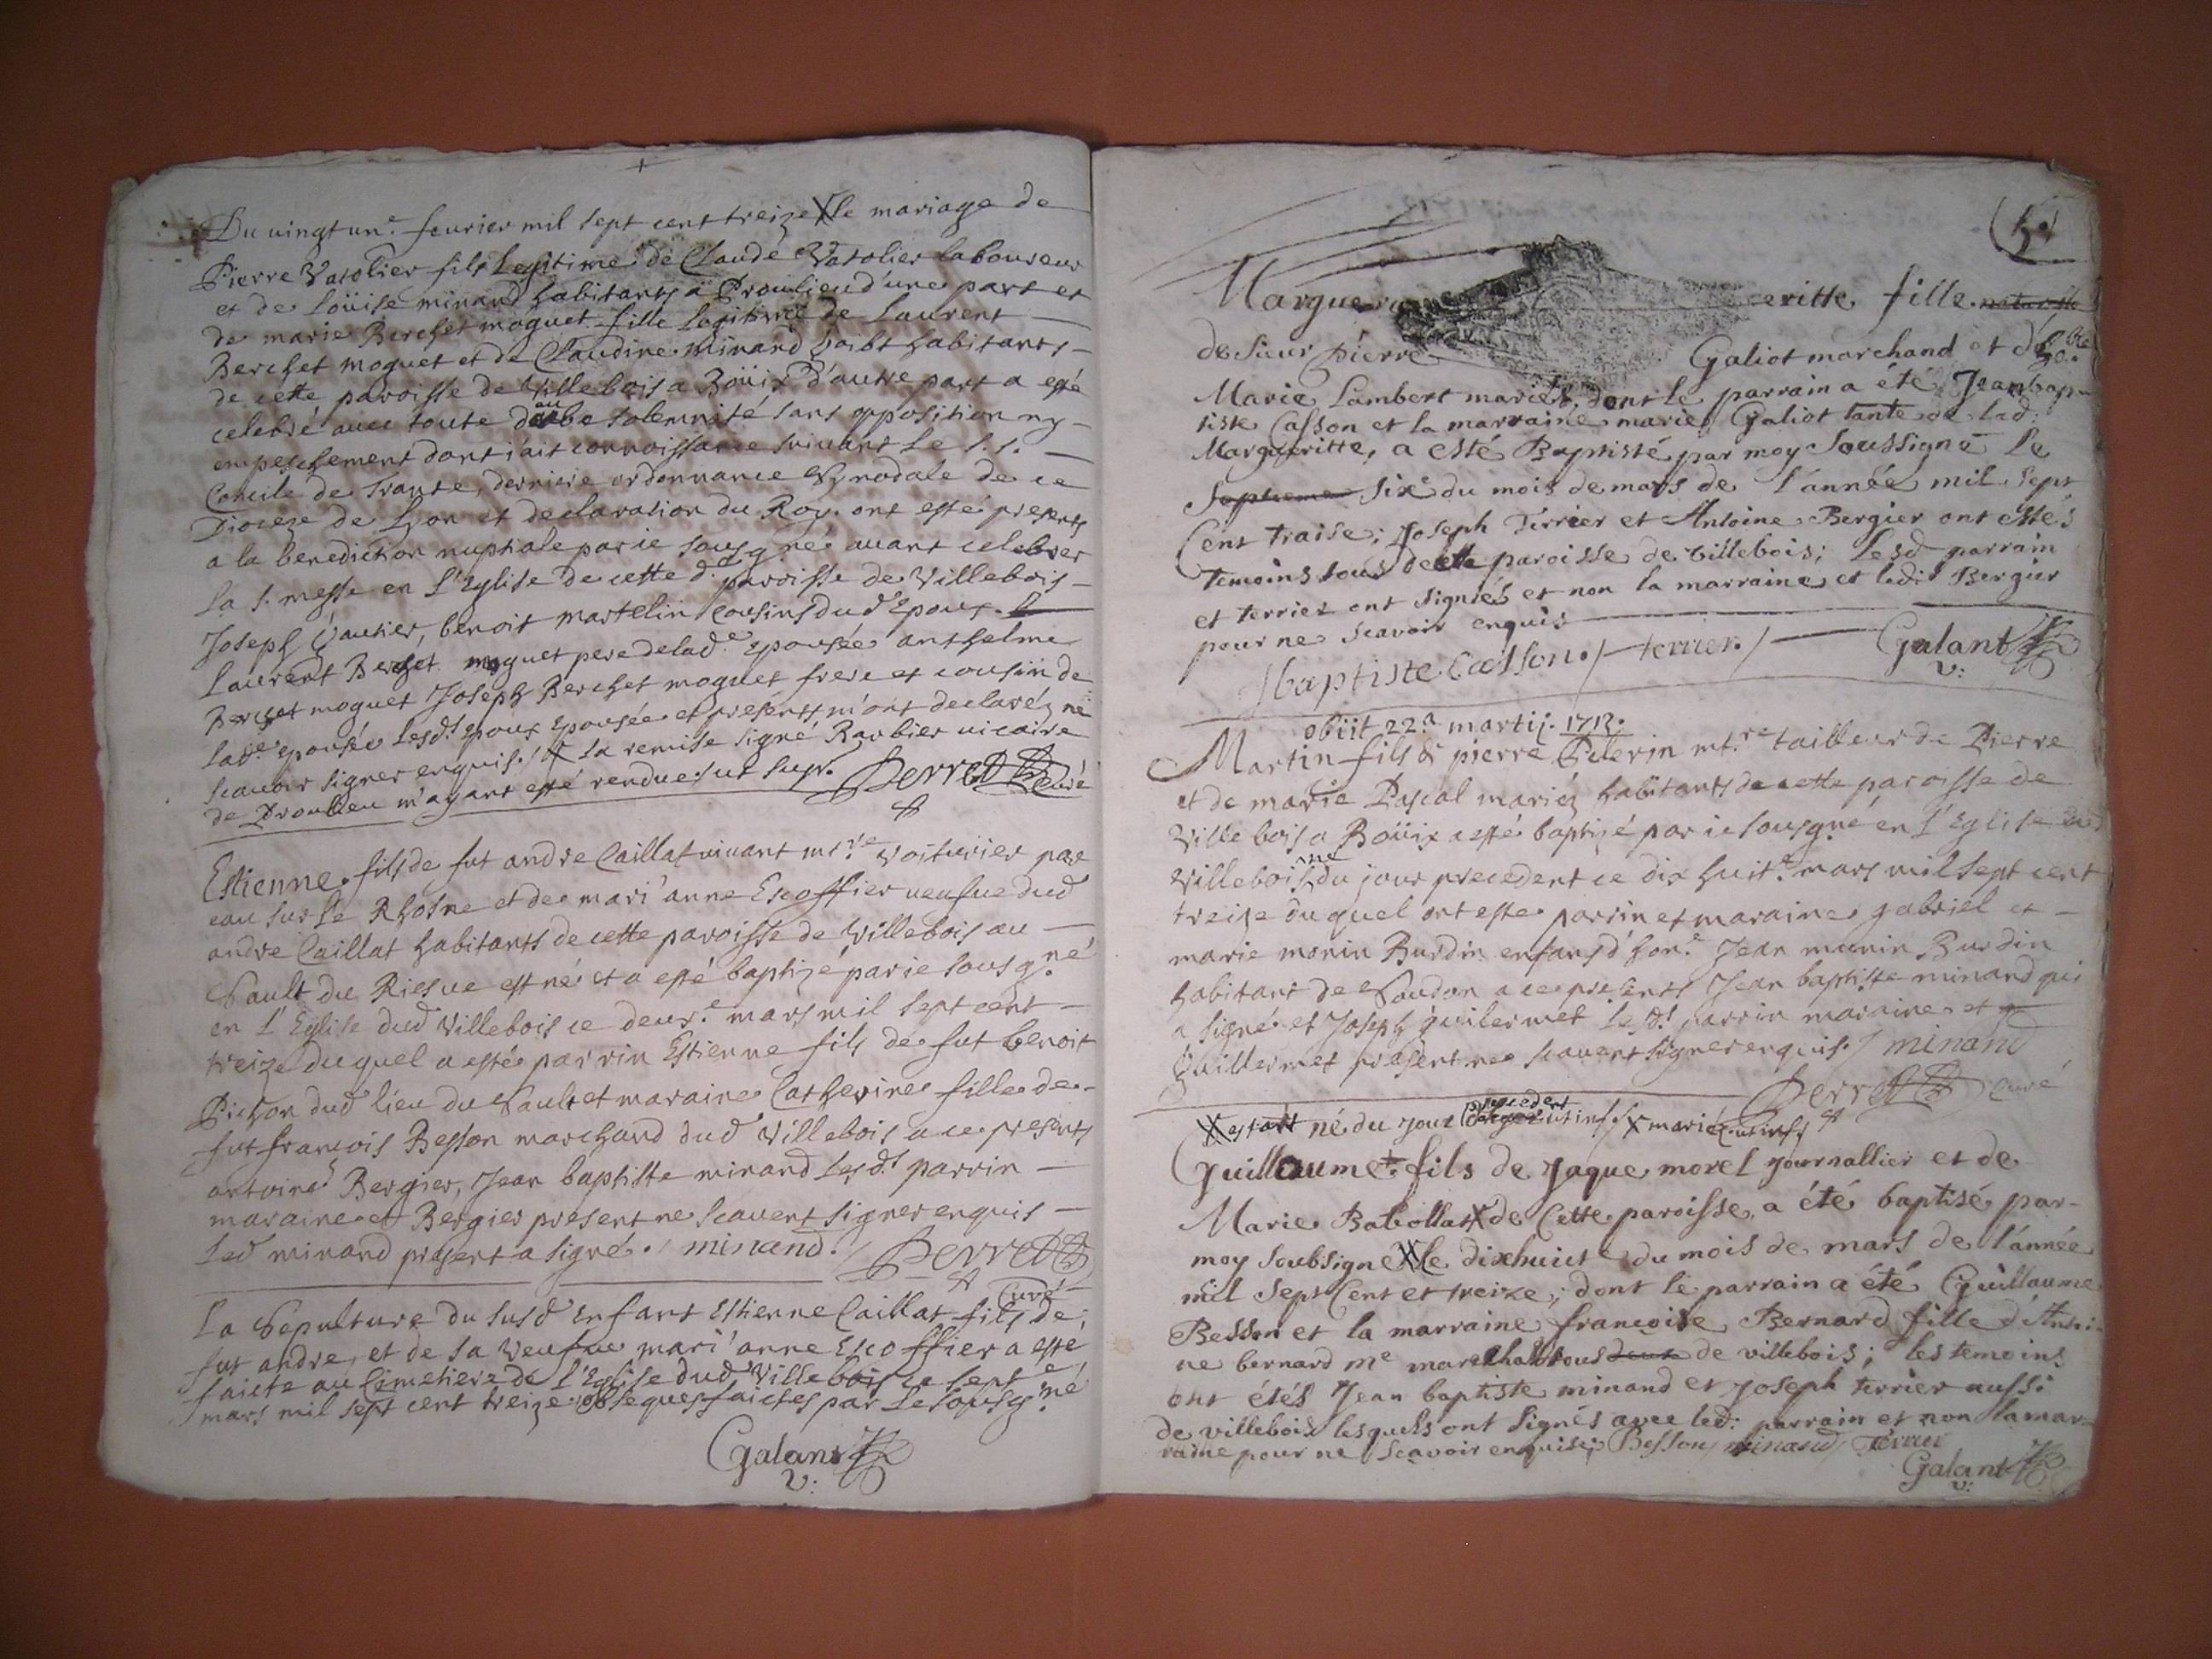 Du vingt un.e feurier mil sept cent treize X le mariage de
Pierre Vatolier fils Legitime de Claude Vatolier laboureur
et de Loüise minand habitants a Proulieu d'une part et
de marie Berchet moguet fille legitime de Laurent
Berchet moguet et de Claudine minand habitants
de cette paroisse de Villebois a Boüix d'autre part a esté
celebré auec toute deube solemnité sans opposition ny
empeschement dont i'ait connoissance suiuant Le S.t
Concile de trante, derniere ordonnance Synodale de ce
Dioceze de Lyon et declaration du Roy. ont esté presents
a la benediction nuptiale par ie sousg.né auant celebrer
la S. messe en l'Eglise de cette d. paroisse de Villebois
Joseph Gautier, benoit martelin cousins dud Epoux.
Laurent Berchet moguet pere de lad.e epousée anthelme
Berchet moguet Joseph Berchet moguet frere et cousin de
lad.e epousée Lesd.s epoux Epousée et presents m'ont declaréz ne
scauoir signer enquis. / X la remise signé Barbier uicaire
de Proulieu m'ayant esté rendue sut supr. Perret Curé
Estienne fils de fut andre Caillat uiuant mt.re voiturier par
eau sur le Rhosne et de mari'anne Escoffier ueufue dud
andre Caillat habitants de cette paroisse de Villebois au
Sault du Riesue est né et a esté baptizé par ie sousg.né
en l'Eglise dud Villebois ce deux.e mars mil sept cent
treize duquel a esté parrin Estienne fils de fut benoit
Pichon dud lieu du Sault et maraine Catherine fille de
fut françois Besson marchand dud Villebois a ce presents
antoine Bergier, Jean baptiste minand Lesd.s parrin
maraine et Bergier present ne scauent signer enquis
Led minand present a signé. / minand. / Perret
Curé
La Sepulture du susd Enfant Estienne Caillat fils de
fut andre, et de sa Veufue mari'anne Escoffier a esté
faicte au Cimetiere de l'Eglise dud Villebois ce sept.e
mars mil sept cent treize obseques faictes par Le sousg.né
Galant
v:
Margue eritte fille naturelle
de sieur Pierre Galiot marchand et d'ho.ble
Marie Lambert mariés, dont le parrain a été Jean bap-
tiste Casson et la marraine marie Galiot tante de lad.
Margueritte, a esté Baptisté par moy Soussigné Le
Septieme Six.e du mois de mars de l'année mil sept
Cent traise; Joseph Terrier et Antoine Bergier ont estés
temoins tous de cette paroisse de villebois; Lesd parrain
et terrier ont signés et non la marraine et ledit Bergier
pour ne scavoir enquis
Jbaptiste Casson. / terrier. / Galant
v:
obiit 22.a martij. 1713.
Martin fils de pierre Pelerin mt.re tailleur de Pierre
et de marie Pascal mariéz habitants de cette paroisse de
Villebois a Boüix a esté baptizé par ie sousg.né en l'Eglise dud
Villebois né du jour precedent ce dix huit.e mars mil sept cent
treize duquel ont esté parrin et maraine gabriel et
marie monin Burdin enfans d'hon.e Jean monin Burdin
habitant de Soudon a ce presents Jean baptiste minand qui
a signé et Joseph guilermet Lesd.s parrin maraine et g
Guillermet present ne scauent signer enquis. / minand
Perret Curé
X estant né du jour precedent ut inf. / X mariéz ut inf.
Guillaume + fils de Jaque morel journallier et de
Marie Babollat X de Cette paroisse, a été baptisé par
moy soubsigné X le dixhuict.e du mois de mars de l'année
mil sept Cent et treize; dont le parrain a été Guillaume
Besson et la marraine françoise Bernard fille d'Antoi-
ne bernard m.e marechal tous deux de villebois; les temoins
ont étés Jean baptiste minand et Joseph terrier aussi
de villebois lesquels ont signés avec led: parrain et non la mar-
raine pour ne scavoir enquise; Besson / minand / Terrier
Galant
v: